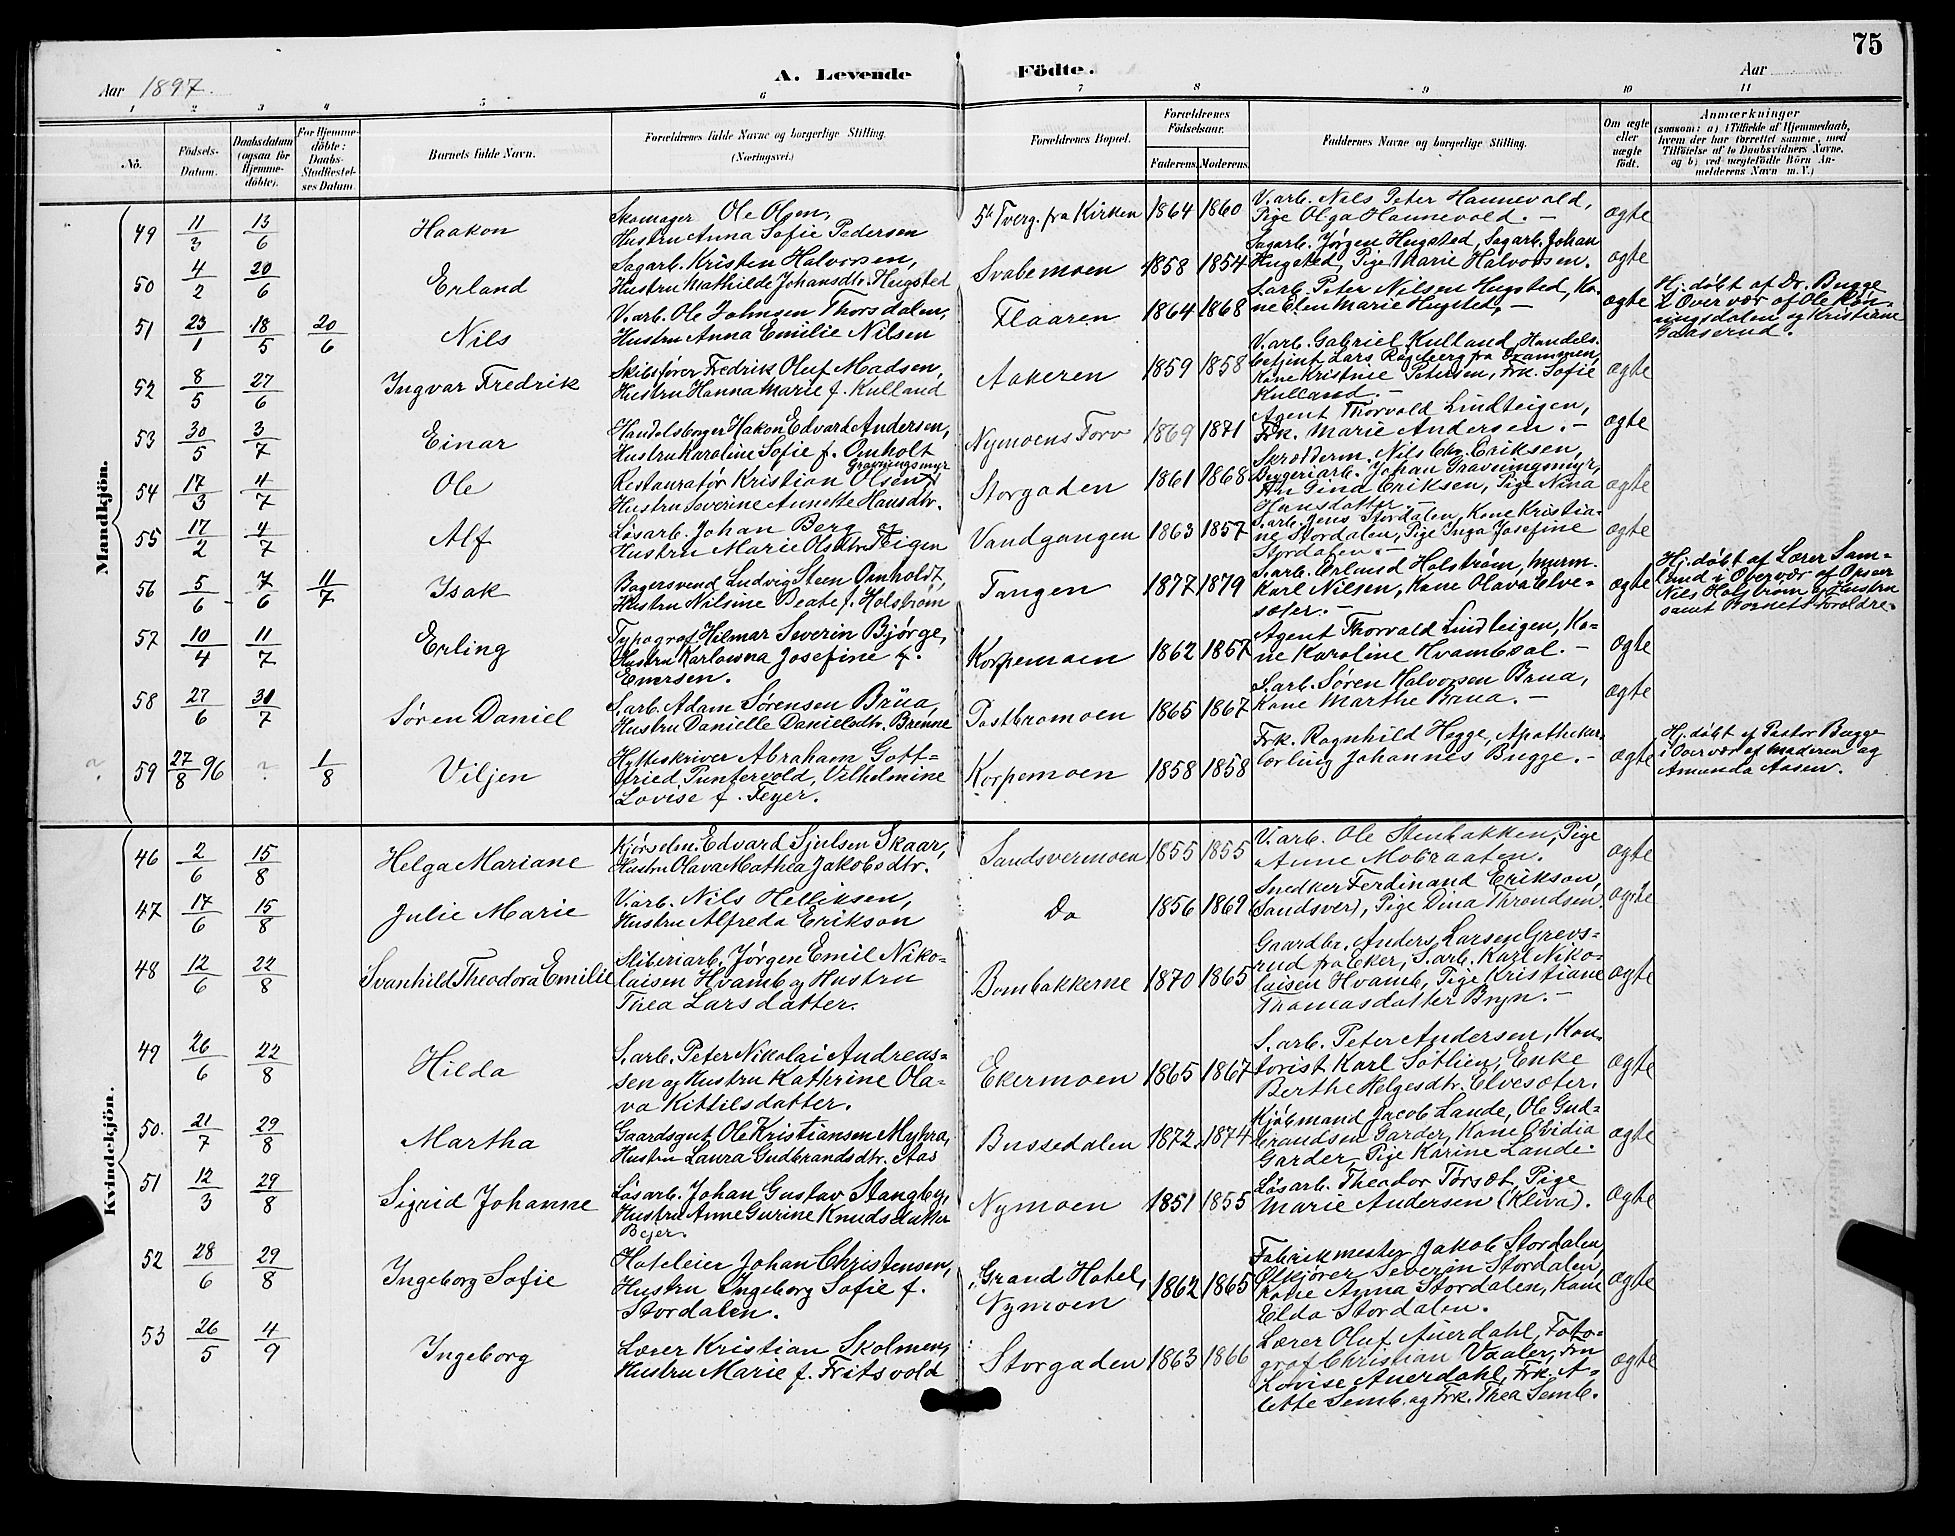 75
Aar 1897.
A. Levende Födte.
Aar
1 2 3 4 5 6 7 8 9 10 11
No.
Födsels-Datum.
Daabsdatum (ogsaa for Hjemmedöbte).
For Hjemmedöbte: Daabs-Stadfæstelses Datum.
Barnets fulde Navn.
Forældrenes fulde Navne og borgerlige Stilling. (Næringsvei.)
Forældrenes Bopæl.
Forældrenes Födselsaar.
Faderens. Moderens.
Faddernes Navne og borgerlige Stilling.
Om ægte eller uægte födt.
Anmærkninger
(saasom: a) i Tilfælde af Hjemmedaab, hvem der har forrettet samme, med Tilföielse af to Daabsvidners Navne, og b) ved uægtefödte Börn Anmelderens Navn m. V.)
Mandkjön.
49 11/3 13/6 Haakon
Skomager Ole Olsen,
Hustru Anna Sofie Pedersen
5te Tverg. fra Kirken 1864 1860
V.arb. Nils Peter Hannevold,
Pige Olga Hannevold. –
ægte
50 4/2 20/6 Erland
Sagarb. Kristen Halvorsen,
Hustru Mathilde Johansdtr. Hugsted
Svabemoen 1858 1854
Sagarb. Jørgen Hugsted, Sagarb. Johan
Hugsted, Pige Marie Halvorsen.
ægte
51 23/1 18/5 20/6 Nils
V.arb. Ole Johnsen Thorsdalen,
Hustru Anna Emilie Nilsen
Flaaren 1864 1868
S.arb. Peter Nilsen Hugsted, Ko-
ne Elen Marie Hugsted, –
ægte
Hj. døbt af Dr. Bugge
i Overvær af Ole Ron-
ningsdalen og Kristiane
Gaaserud.
52 8/5 27/6 Ingvar Fredrik
Skibsfører Fredrik Oluf Madsen,
Hustru Hanna Marie f. Kulland
Aakeren 1859 1858
V.arb. Gabriel Kulland, Handels-
betjent Lars Rogeberg fra Drammen,
Kone Kristine Petersen, Frk. Sofie
Kulland. –
ægte
53 30/5 3/7 Einar
Handelsborger Hakon Edvard Andersen,
Hustru Karoline Sofie f. Omholt
Nymoens Torv 1869 1871
Agent Thorvald Lindteigen,
Frk. Marie Andersen. –
ægte
54 17/3 4/7 Ole
Restauratør Kristian Olsen Gravningsmyr
Hustru Severine Annette Hansdtr.
Storgaden 1861 1868
Skrædderm. Nils Chr. Eriksen,
Byggeriarb. Johan Gravningsmyr,
Fru Gina Eriksen, Pige Nina
Hansdatter. –
ægte
55 17/2 4/7 Alf
Løsarb. Johan Berg og
Hustru Marie Olsdtr. Teigen
Vandgangen 1863 1857
S.arb. Jens Stordalen, Kone Kristia-
ne Stordalen, Pige Inga Josefine
Stordalen. –
ægte
56 5/6 7/6 11/7 Isak
Bagersvend Ludvig Steen Omholdt,
Hustru Nilsine Beate f. Holstrøm
Tangen 1877 1879
S.arb. Erland Holstrøm, Murm.
Karl Nilsen, Kone Olava Elve-
sæter. –
ægte
Hj. døbt af Lærer Sam-
lund i Overvær af Opseer
Nils Holstrøm og Hustru
samt Barnets Forældre.
57 10/4 11/7 Erling
Typograf Hilmar Severin Bjørge,
Hustru Karlowna Josefine f.
Eversen.
Korpemoen 1862 1857
Agent Thorvald Lindteigen, Ko-
ne Karoline Hvambsal. –
ægte
58 27/6 31/7 Søren Daniel
S.arb. Adam Sørensen Brua,
Hustru Danielle Danielsdtr. Brenne
Pastbromoen 1865 1867
S.arb. Søren Halvorsen Brua,
Kone Marthe Brua. –
ægte
? 59 27/8 96 ? 1/8 Viljen
Hytteskriver Abraham Gott-
fried Puntervold, Vilhelmine
Lovise f. Feyer.
Korpemoen 1858 1858
Frk. Ragnhild Hegge, Apotheker-
lærling Johannes Bugge. –
ægte
Hj. døbt af Pastor Bugge
i Overvær af Moderen og
Amunda Aasen.
Kvindekjön.
46 2/6 15/8 Helga Mariane
Kjørselm. Edvard Sjulsen Skaar,
Hustru Olava Mathea Jakobsdtr.
Sandsvermoen 1855 1855
V.arb. Ole Stenbakken, Pige
Anne Mobraaten.
ægte
47 17/6 15/8 Julie Marie
V.arb. Nils Helliksen,
Hustru Alfreda Erikson
Do 1856 1869
Snedker Ferdinand Erikson,
(Sandsver), Pige Dina Throndsen.
ægte
48 12/6 22/8 Svanhild Theodora Emilie
Sliberiarb. Jørgen Emil Niko-
laisen Hvamb og Hustru
Thea Larsdatter.
Bombakkerne 1870 1865
Gaardbr. Anders Larsen Grevs-
rud fra Eker, S.arb. Karl Niko-
laisen Hvamb, Pige Kristiane
Thomasdatter Bryn. –
ægte
49 26/6 22/8 Hilda
S.arb. Peter Nikolai Andreas-
sen og Hustru Kathrine Ola-
va Kittilsdatter.
Ekermoen 1865 1867
S.arb. Peter Andersen, Kon-
torist Karl Søtlien, Enke
Berthe Helgesdtr. Elvesæter.
ægte
50. 21/7 29/8 Martha
Gaardsgut Ole Kristiansen Myhra,
Hustru Laura Gudbrandsdtr. Aas
Bussedalen 1872 1874
Kjøbmand Jacob Lande, Ole Gud-
brandsen Garder, Kone Ovidia
Garder, Pige Karine Lande.
ægte
51 12/3 29/8 Sigrid Johanne
Løsarb. Johan Gustav Stangeby,
Hustru Anne Gurine Knudsdatter
Bejer.
Nymoen 1851 1855
Løsarb. Theodor Torsæt, Pige
Marie Andersen (Kliva).
ægte
52 28/6 29/8 Ingeborg Sofie
Hoteleier Johan Christensen,
Hustru Ingeborg Sofie f.
Stordalen.
Grand Hotel,
Nymoen 1862 1865
Fabrikmester Jakob Stordalen,
Ølkjører Severin Stordalen,
Kone Anna Stordalen, Kone
Elda Stordalen.
ægte
53 26/5 4/9 Ingeborg
Lærer Kristian Skolmen,
Hustru Marie f. Fritsvold
Storgaden 1863 1866
Lærer Oluf Auerdahl, Foto-
graf Christian Vaaler, Fru
Lovise Auerdahl, Frk. A-
lette Semb. og Frk. Thea Semb.
ægte